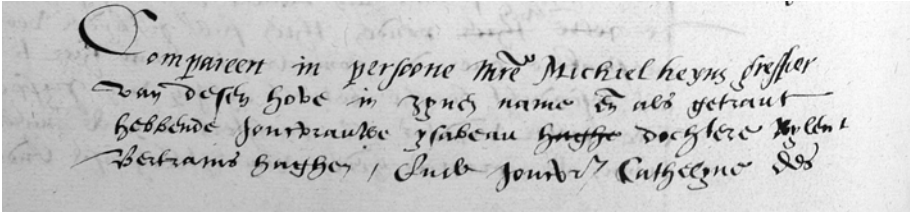 Compareert in persoone Mre Michiel heyns greffier
van desen hove in zynen name en als getraut
hebbende Joncvrauwe ysabeau haghe dochtere wylent
Bertrams haghen, Ende Joncvr. Cathelyne des